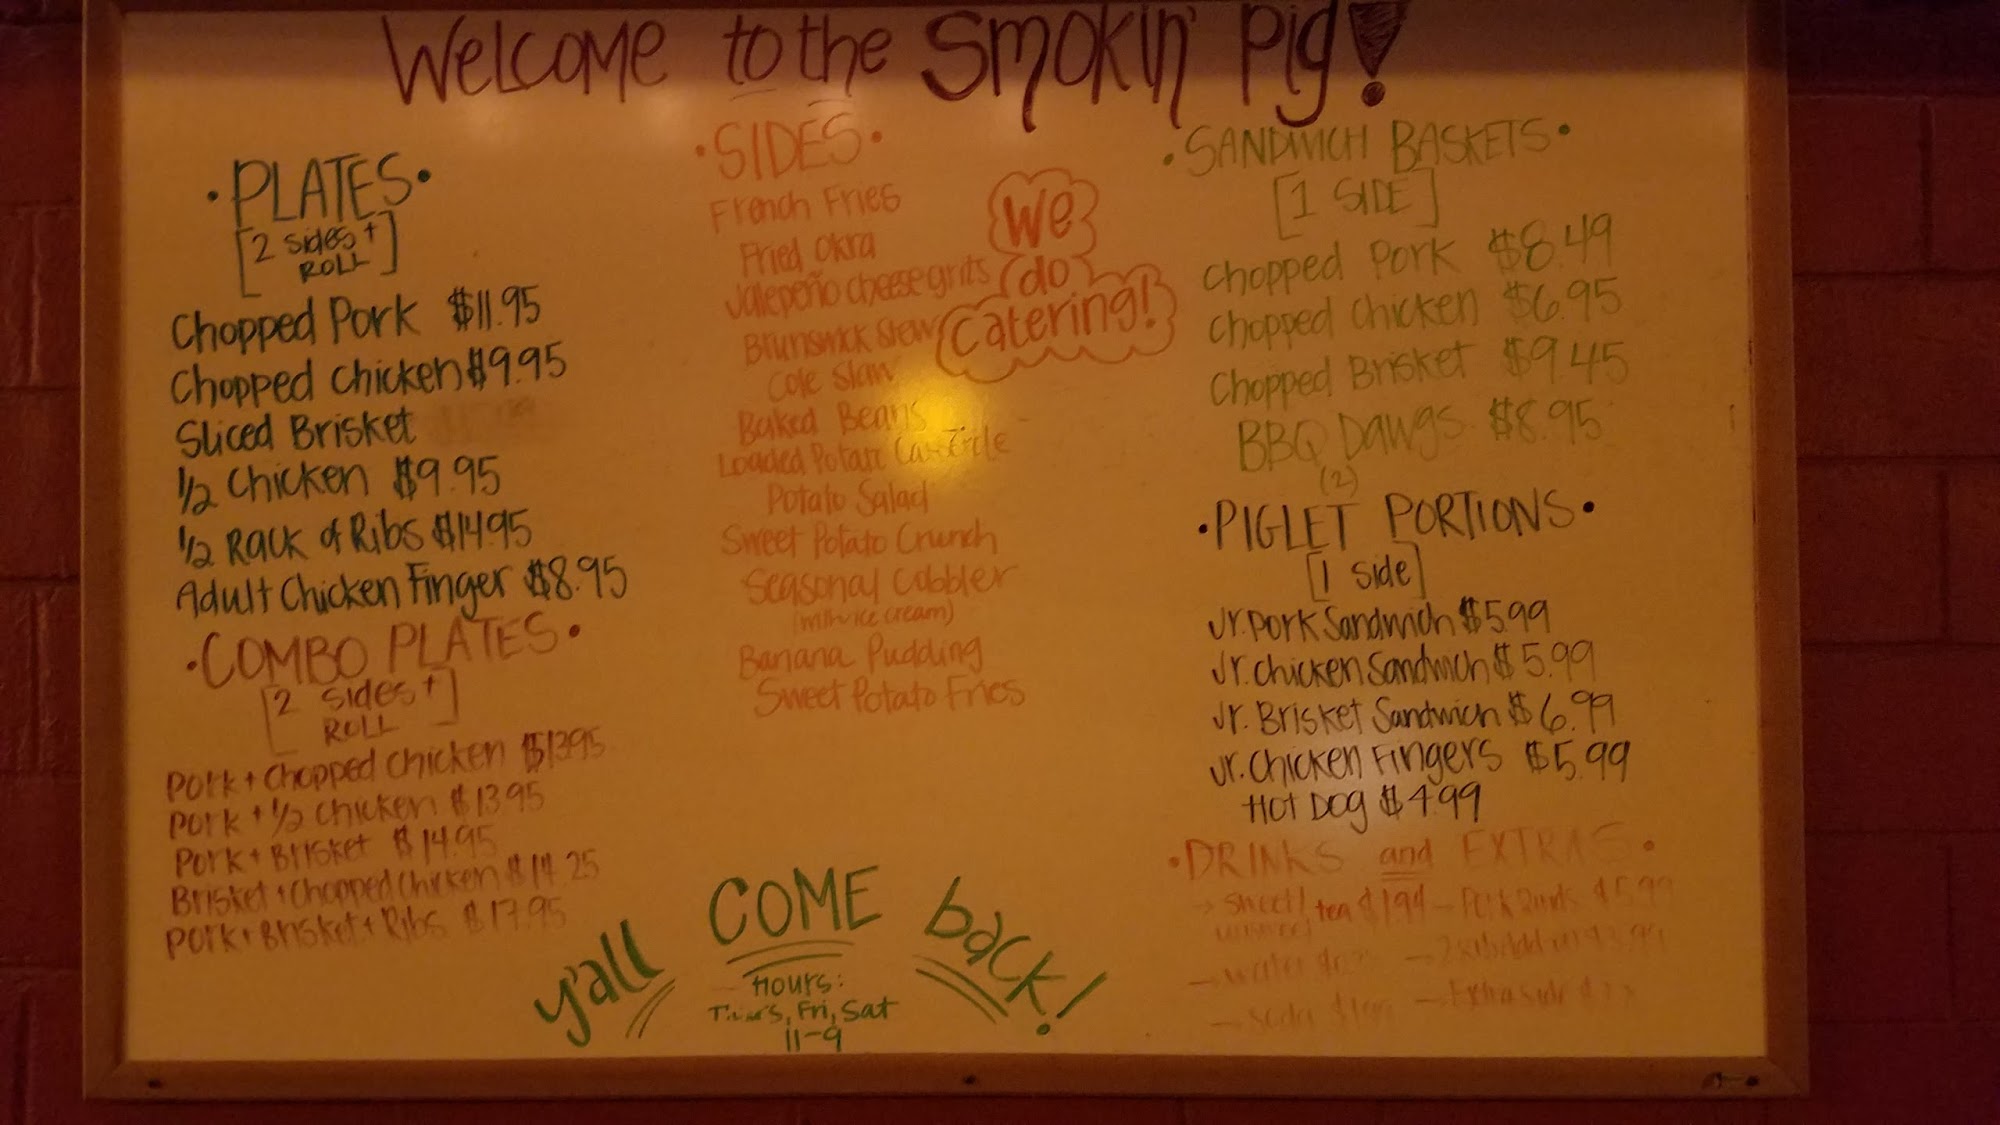 Welcome to the Smokin' Pig!
• PLATES •
[2 sides +
ROLL]
Chopped Pork $11.95
Chopped Chicken $9.95
Sliced Brisket
1/2 Chicken $9.95
1/2 Rack of Ribs $14.95
Adult Chicken Finger $8.95
• COMBO PLATES •
[2 sides +
ROLL]
Pork + Chopped Chicken $13.95
Pork + 1/2 Chicken $13.95
Pork + Brisket $14.95
Brisket + Chopped Chicken $14.25
Pork + Brisket + Ribs $17.95
• SIDES •
French Fries
Fried Okra
Jalepeño cheese grits
Brunswick Stew
Cole Slaw
Baked Beans
Loaded Potato Casserole
Potato Salad
Sweet Potato Crunch
Seasonal Cobbler
(with ice cream)
Banana Pudding
Sweet Potato Fries
We
do
Catering!
• SANDWICH BASKETS •
[1 SIDE]
Chopped Pork $8.49
Chopped Chicken $6.95
Chopped Brisket $9.45
BBQ Dawgs $8.95
(2)
• PIGLET PORTIONS •
[1 side]
Jr. Pork Sandwich $5.99
Jr. Chicken Sandwich $5.99
Jr. Brisket Sandwich $6.99
Jr. Chicken Fingers $5.99
Hot Dog $4.99
• DRINKS and EXTRAS •
→ sweet/ tea $1.94 – Pork Rinds $5.99
→ water
→ soda
→ Extra side
y'all COME back!
Hours:
Thurs, Fri, Sat
11-9